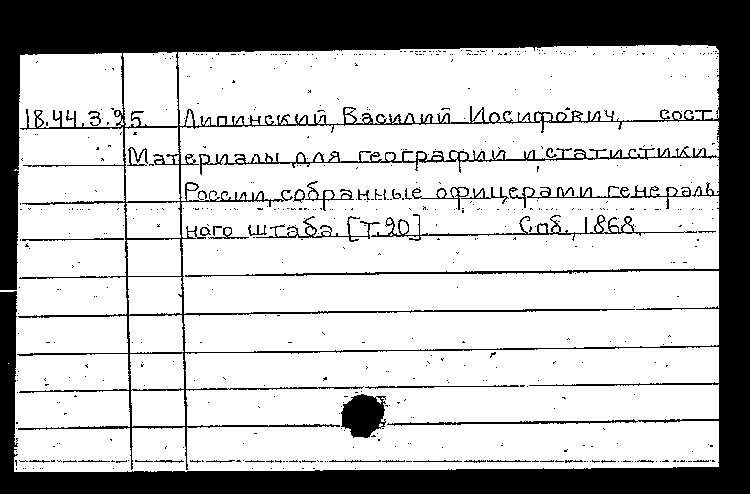 18.44.3.25. Липинский, Василий Иосифович, сост.
Материалы для географии и статистики
России, собранные офицерами генераль-
ного штаба. [Т.20] Спб., 1868.